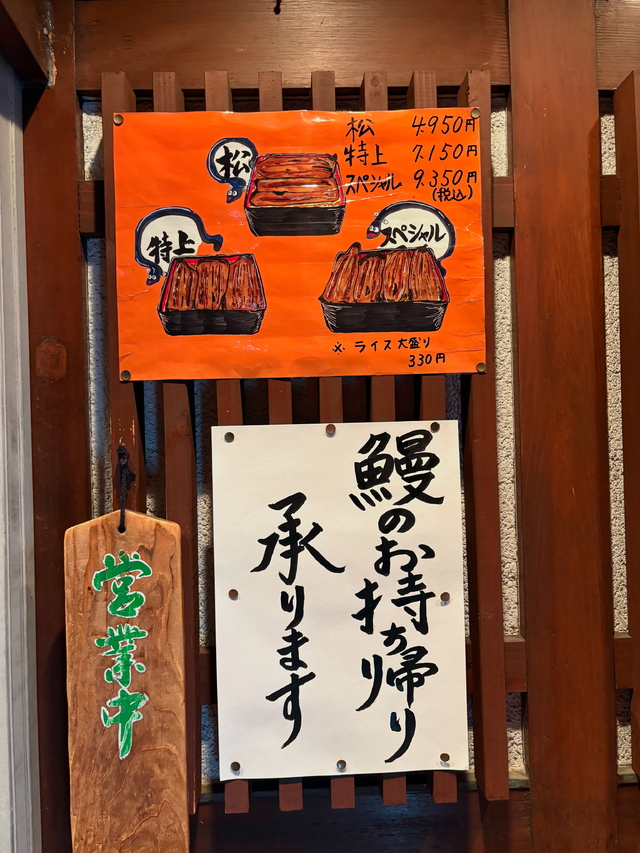 松 4.950円
特上 7.150円
スペシャル 9.350円
(税込)
松
特上
スペシャル
※ ライス大盛り
330円
鰻のお持ち帰り
承ります
営業中